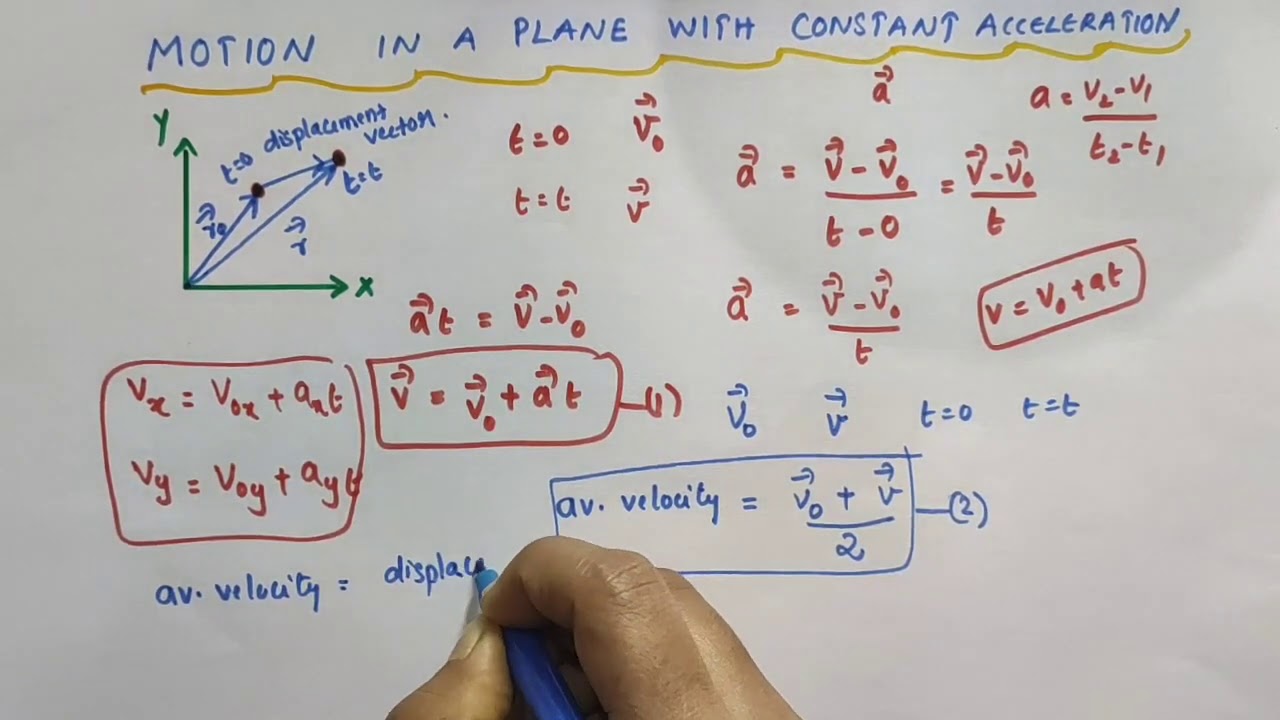 MOTION IN A PLANE WITH CONSTANT ACCELERATION
Y
displacement
vector.
t=0
t=t
r⃗₀
r⃗
X
t=0 v⃗₀
t=t v⃗
a⃗
a = (v₂-v₁)/(t₂-t₁)
a⃗ = (v⃗-v⃗₀)/(t-0) = (v⃗-v⃗₀)/t
a⃗ = (v⃗-v⃗₀)/t
v=v₀+at
a⃗t = v⃗-v⃗₀
v⃗ = v⃗₀+a⃗t —(1)
vₓ = v₀ₓ+aₓt
v_y = v_0y+a_yt
v⃗₀ v⃗ t=0 t=t
av. velocity = (v⃗₀+v⃗)/2 —(2)
av. velocity = displac